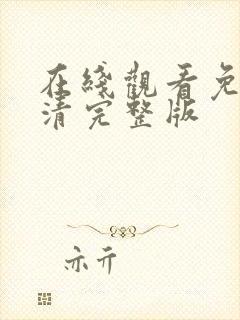 在綫觀看免
清完整版
亦亓